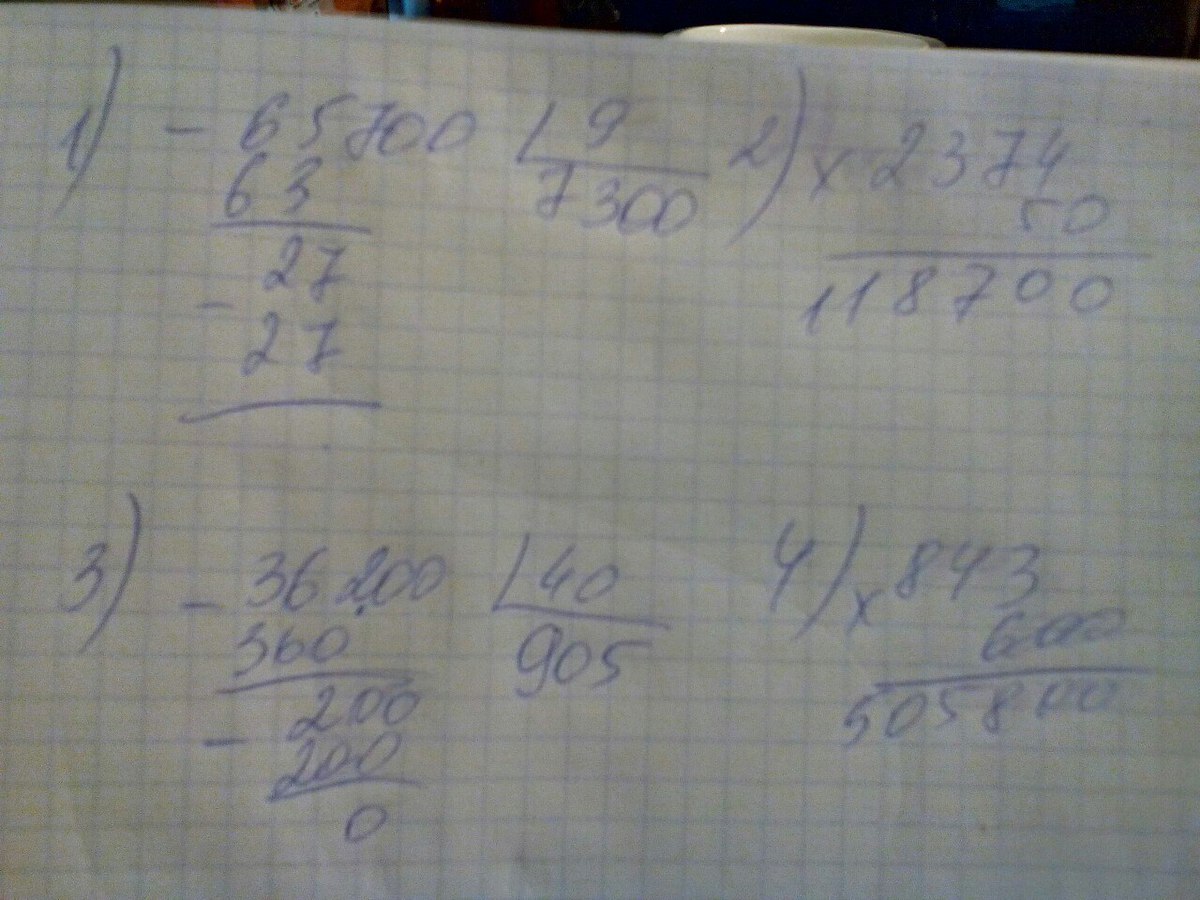 1) - 65700 | 9
63 7300
27
- 27
2) x 2374
50
118700
3) - 36200 | 40
360 905
- 200
200
0
4) x 843
600
505800